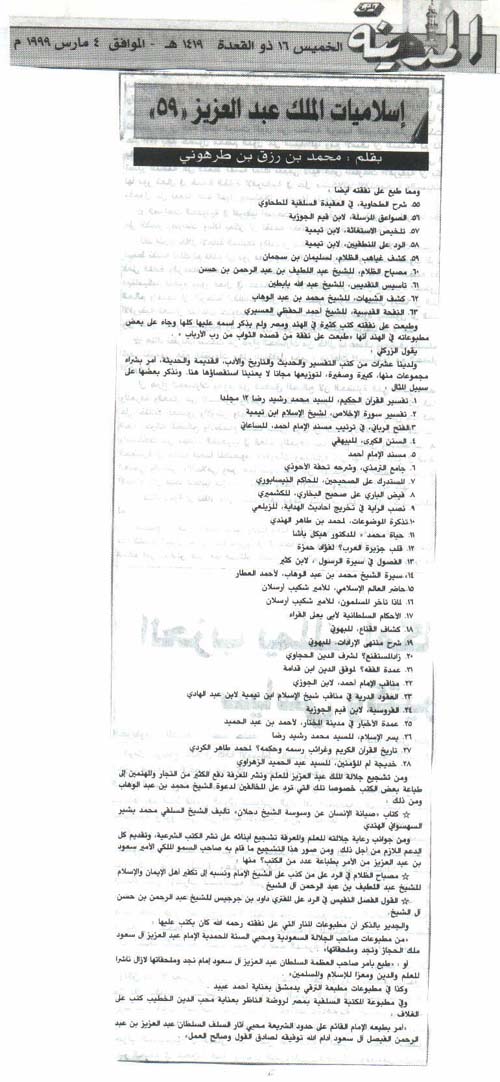 المدينة
الخميس ١٦ ذو القعدة ١٤١٩ هـ - الموافق ٤ مارس ١٩٩٩ م
إسلاميات الملك عبد العزيز «٥٩»
بقلم : محمد بن رزق بن طرهوني
ومما طبع على نفقته أيضا :
٥٥. شرح الطحاوية، في العقيدة السلفية للطحاوي
٥٦. الصواعق المرسلة، لابن قيم الجوزية
٥٧. تلخيص الاستغاثة، لابن تيمية
٥٨. الرد على المنطقيين، لابن تيمية
٥٩. كشف غياهب الظلام، لسليمان بن سحمان
٦٠. مصباح الظلام، للشيخ عبد اللطيف بن عبد الرحمن بن حسن
٦١. تأسيس التقديس، للشيخ عبد الله بابطين
٦٢. كشف الشبهات، للشيخ محمد بن عبد الوهاب
٦٣. النفحة القدسية، للشيخ أحمد الحفظي العسيري
وطبعت على نفقته كتب كثيرة في الهند ومصر ولم يذكر اسمه عليها كلها وجاء على بعض
مطبوعاته في الهند أنها «طبعت على نفقة من قصده الثواب من رب الأرباب» .
يقول الزركلي :
ولدينا عشرات من كتب التفسير والحديث والتاريخ والأدب، القديمة والحديثة، أمر بشراء
مجموعات منها، كبيرة وصغيرة، لتوزيعها مجانا لا يعنينا استقصاؤها هنا. ونذكر بعضها على
سبيل المثال .
١. تفسير القرآن الحكيم، للسيد محمد رشيد رضا ١٢ مجلدا
٢. تفسير سورة الإخلاص، لشيخ الإسلام ابن تيمية
٣. الفتح الرباني، في ترتيب مسند الإمام أحمد، للساعاتي
٤. السنن الكبرى، للبيهقي
٥. مسند الإمام أحمد
٦. جامع الترمذي، وشرحه تحفة الأحوذي
٧. المستدرك على الصحيحين، للحاكم النيسابوري
٨. فيض الباري على صحيح البخاري، للكشميري
٩. نصب الراية في تخريج أحاديث الهداية، للزيلعي
١٠. تذكرة الموضوعات، لمحمد بن طاهر الهندي
١١. حياة محمد « للدكتور هيكل باشا
١٢. قلب جزيرة العرب؟ لفؤاد حمزة
١٣. الفصول في سيرة الرسول ، لابن كثير
١٤. سيرة الشيخ محمد بن عبد الوهاب، لأحمد العطار
١٥. حاضر العالم الإسلامي، للأمير شكيب أرسلان
١٦. لماذا تأخر المسلمون، للأمير شكيب أرسلان
١٧. الأحكام السلطانية لأبي يعلى الفراء
١٨. كشاف القناع، للبهوتي
١٩. شرح منتهى الإرادات، للبهوتي
٢٠. زاد المستقنع؟ لشرف الدين الحجاوي
٢١. عمدة الفقه؟ لموفق الدين ابن قدامة
٢٢. مناقب الإمام أحمد، لابن الجوزي
٢٣. العقود الدرية في مناقب شيخ الإسلام ابن تيمية لابن عبد الهادي
٢٤. الفروسية، لابن قيم الجوزية
٢٥. عمدة الأخبار في مدينة المختار، لأحمد بن عبد الحميد
٢٦. يسر الإسلام، للسيد محمد رشيد رضا
٢٧. تاريخ القرآن الكريم وغرائب رسمه وحكمه؟ لمحمد طاهر الكردي
٢٨. خديجة أم المؤمنين، للسيد عبد الحميد الزهراوي
ومن تشجيع جلالة الملك عبد العزيز للعلم ونشر المعرفة دفع الكثير من التجار والمهتمين إلى
طباعة بعض الكتب خصوصا تلك التي ترد على المخالفين لدعوة الشيخ محمد بن عبد الوهاب
ومن ذلك :
☆ كتاب «صيانة الإنسان عن وسوسة الشيخ دحلان» تأليف الشيخ السلفي محمد بشير
السهسواني الهندي
ومن جوانب رعاية جلالته للعلم والمعرفة تشجيع أبنائه على نشر الكتب الشرعية، وتقديم كل
الدعم اللازم من أجل ذلك. ومن صور هذا التشجيع ما قام به صاحب السمو الملكي الأمير سعود
بن عبد العزيز من الأمر بطباعة عدد من الكتب؟ منها :
☆ مصباح الظلام في الرد على من كذب على الشيخ الإمام ونسبه إلى تكفير أهل الإيمان والإسلام
للشيخ عبد اللطيف بن عبد الرحمن آل الشيخ
☆ القول الفصل النفيس في الرد على المفتري داود بن جرجيس للشيخ عبد الرحمن بن حسن
آل الشيخ.
والجدير بالذكر أن مطبوعات المنار التي على نفقته رحمه الله كان يكتب عليها :
«من مطبوعات صاحب الجلالة السعودية ومحيي السنة المحمدية الإمام عبد العزيز آل سعود
ملك الحجاز ونجد وملحقاتها».
أو : «طبع بأمر صاحب العظمة السلطان عبد العزيز آل سعود إمام نجد وملحقاتها لازال ناشرا
للعلم والدين ومعزا للإسلام والمسلمين».
وكذا في مطبوعات مطبعة الترقي بدمشق بعناية أحمد عبيد .
وفي مطبوعة المكتبة السلفية بمصر لروضة الناظر بعناية محب الدين الخطيب كتب على
الغلاف :
«أمر بطبعه الإمام القائم على حدود الشريعة محيي آثار السلف السلطان عبد العزيز بن عبد
الرحمن الفيصل آل سعود أدام الله توفيقه لصادق القول وصالح العمل»